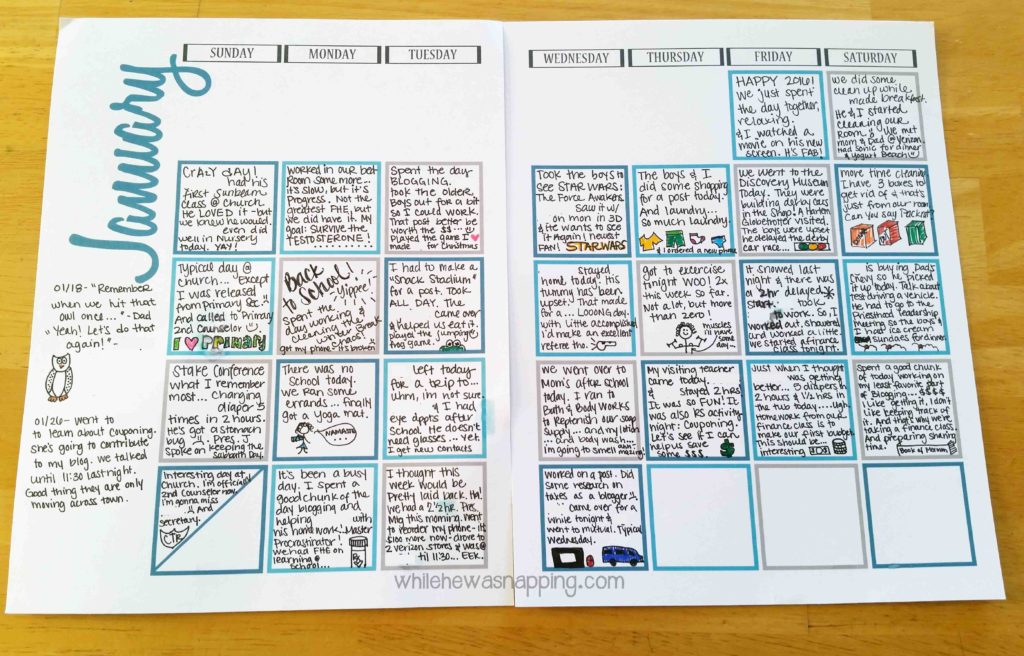 January
SUNDAY
MONDAY
TUESDAY
WEDNESDAY
THURSDAY
FRIDAY
SATURDAY
HAPPY 2016!
we just spent
the day together,
relaxing.
& I watched a
movie on his new
screen. It's FAB!
we did some
clean up while
made breakfast.
He & I started
cleaning our
Room. We met
mom & Dad @ Verizon.
Had Sonic for dinner
& Yogurt Beach
CRAZY DAY!
had his
First Sunbeam
class @ Church.
He LOVED it - but
we knew he would.
even did
well in Nursery
today. YAY!
worked in our bed
Room some more...
it's slow, but it's
Progress. Not the
greatest FHE, but
we did have it. My
goal: SURVIVE the
TESTOSTERONE!
Spent the day
BLOGGING.
took the older
Boys out for a bit
so I could work.
That post better be
worth the $$...
Played the game I
made for Christmas
Took the boys to
see STAR WARS:
The Force Awakens.
Saw it w/
on mon in 3D
& He wants to see
it Again! newest
Fan! STAR WARS
The boys & I
did some shopping
for a post today.
And laundry...
so much laundry.
& I ordered a new phone
we went to the
Discovery Museum
Today. They were
building derby cars
in the Shop! A Harlem
Globetrotter visited.
The boys were upset
he delayed the derby
car race...
more time cleaning.
I have 3 boxes to
get rid of & that's
just from our room.
Can you say Packrat?
01/18 - "Remember
when we hit that
owl once..." - Dad
"Yeah! Let's do that
again!" -
Typical day @
church... Except
I was released
from Primary Sec.
And called to Primary
2nd Counselor
I PRIMARY
Back
to School!
Yippee!
Spent the
day working &
cleaning the
Break
chaos!
got my phone.. it's broken
I had to make a
"Snack Stadium"
for a post. TOOK
ALL DAY. The
came over
& helped us eat it.
played the (jumping)
frog game.
stayed
home today. His
tummy has been
upset. That made
for a... LOOONG day.
with little accomplished
I'd make an excellent
referee tho.
Got to exercise
tonight WOO! 2x
this week so far.
Not a lot, but more
than zero!
muscles
I'll have
some day~
It snowed last
night & there was
a 2hr delayed
start. took
to work. So, I
worked out, showered
and worked a little.
We started a finance
class tonight.
is buying Dad's
Chevy so he picked
it up today. Talk about
test driving a vehicle.
He had to go to the
Priesthood Leadership
Meeting so the boys &
I had ice cream
sundaes for dinner
01/20 - went to
to learn about couponing.
She's going to contribute
to my blog. We talked
until 11:30 last night.
Good thing they are only
moving across town.
Stake Conference
what I remember
most... changing
diaper 5
times in 2 hours.
He's got a Stomach
bug. Pres. J
spoke on keeping the
Sabbath Day.
There was no
School today.
We ran some
errands... finally
got a Yoga mat.
NAMASTE
left today
for a trip to...
Uhm, i'm not sure.
& I had
eye appts after
School. He doesn't
need glasses... yet.
I get new contacts
we went over to
Mom's after school
today. I ran to
Bath & Body Works
to Replenish our soap
supply... and my lotion
and body wash...
I'm going to smell amazing!
My visiting teacher
came today.
& stayed 2 hrs
It was so FUN! It
was also RS activity
night: Couponing.
Let's see if I can
help us save
some $$$
Just when I thought
was getting
better... 3 diapers in
2 hours & 1 1/2 hrs in
the tub today....ugh
Homework from our
finance class is to
make our first budget.
This should be...
interesting
Spent a good chunk
of today working on
my least favorite part
of Blogging... $$$$
I like getting it, I don't
like keeping track of
it. And that's why we're
taking a finance class.
And preparing sharing
time.
Book of Mormon
Interesting day at
Church. I'm officially
2nd Counselor now.
I'm gonna miss
And
secretary.
CTR
It's been a busy
day. I spent a
good chunk of the
day blogging and
helping with
his homework. Master
Procrastinator!
We had FHE on
learning @
School...
I thought this
week would be
Pretty laid back. Ha!
we had a 2 1/2 hr. Pres.
Mtg this morning. Went
to reorder my phone - it's
$100 more now - drove to
2 Verizon Stores & was @
til 11:30... EEK.
worked on a post. Did
some research on
taxes as a blogger
came over for a
while tonight &
went to mutual. Typical
Wednesday.
whilehewasnapping.com